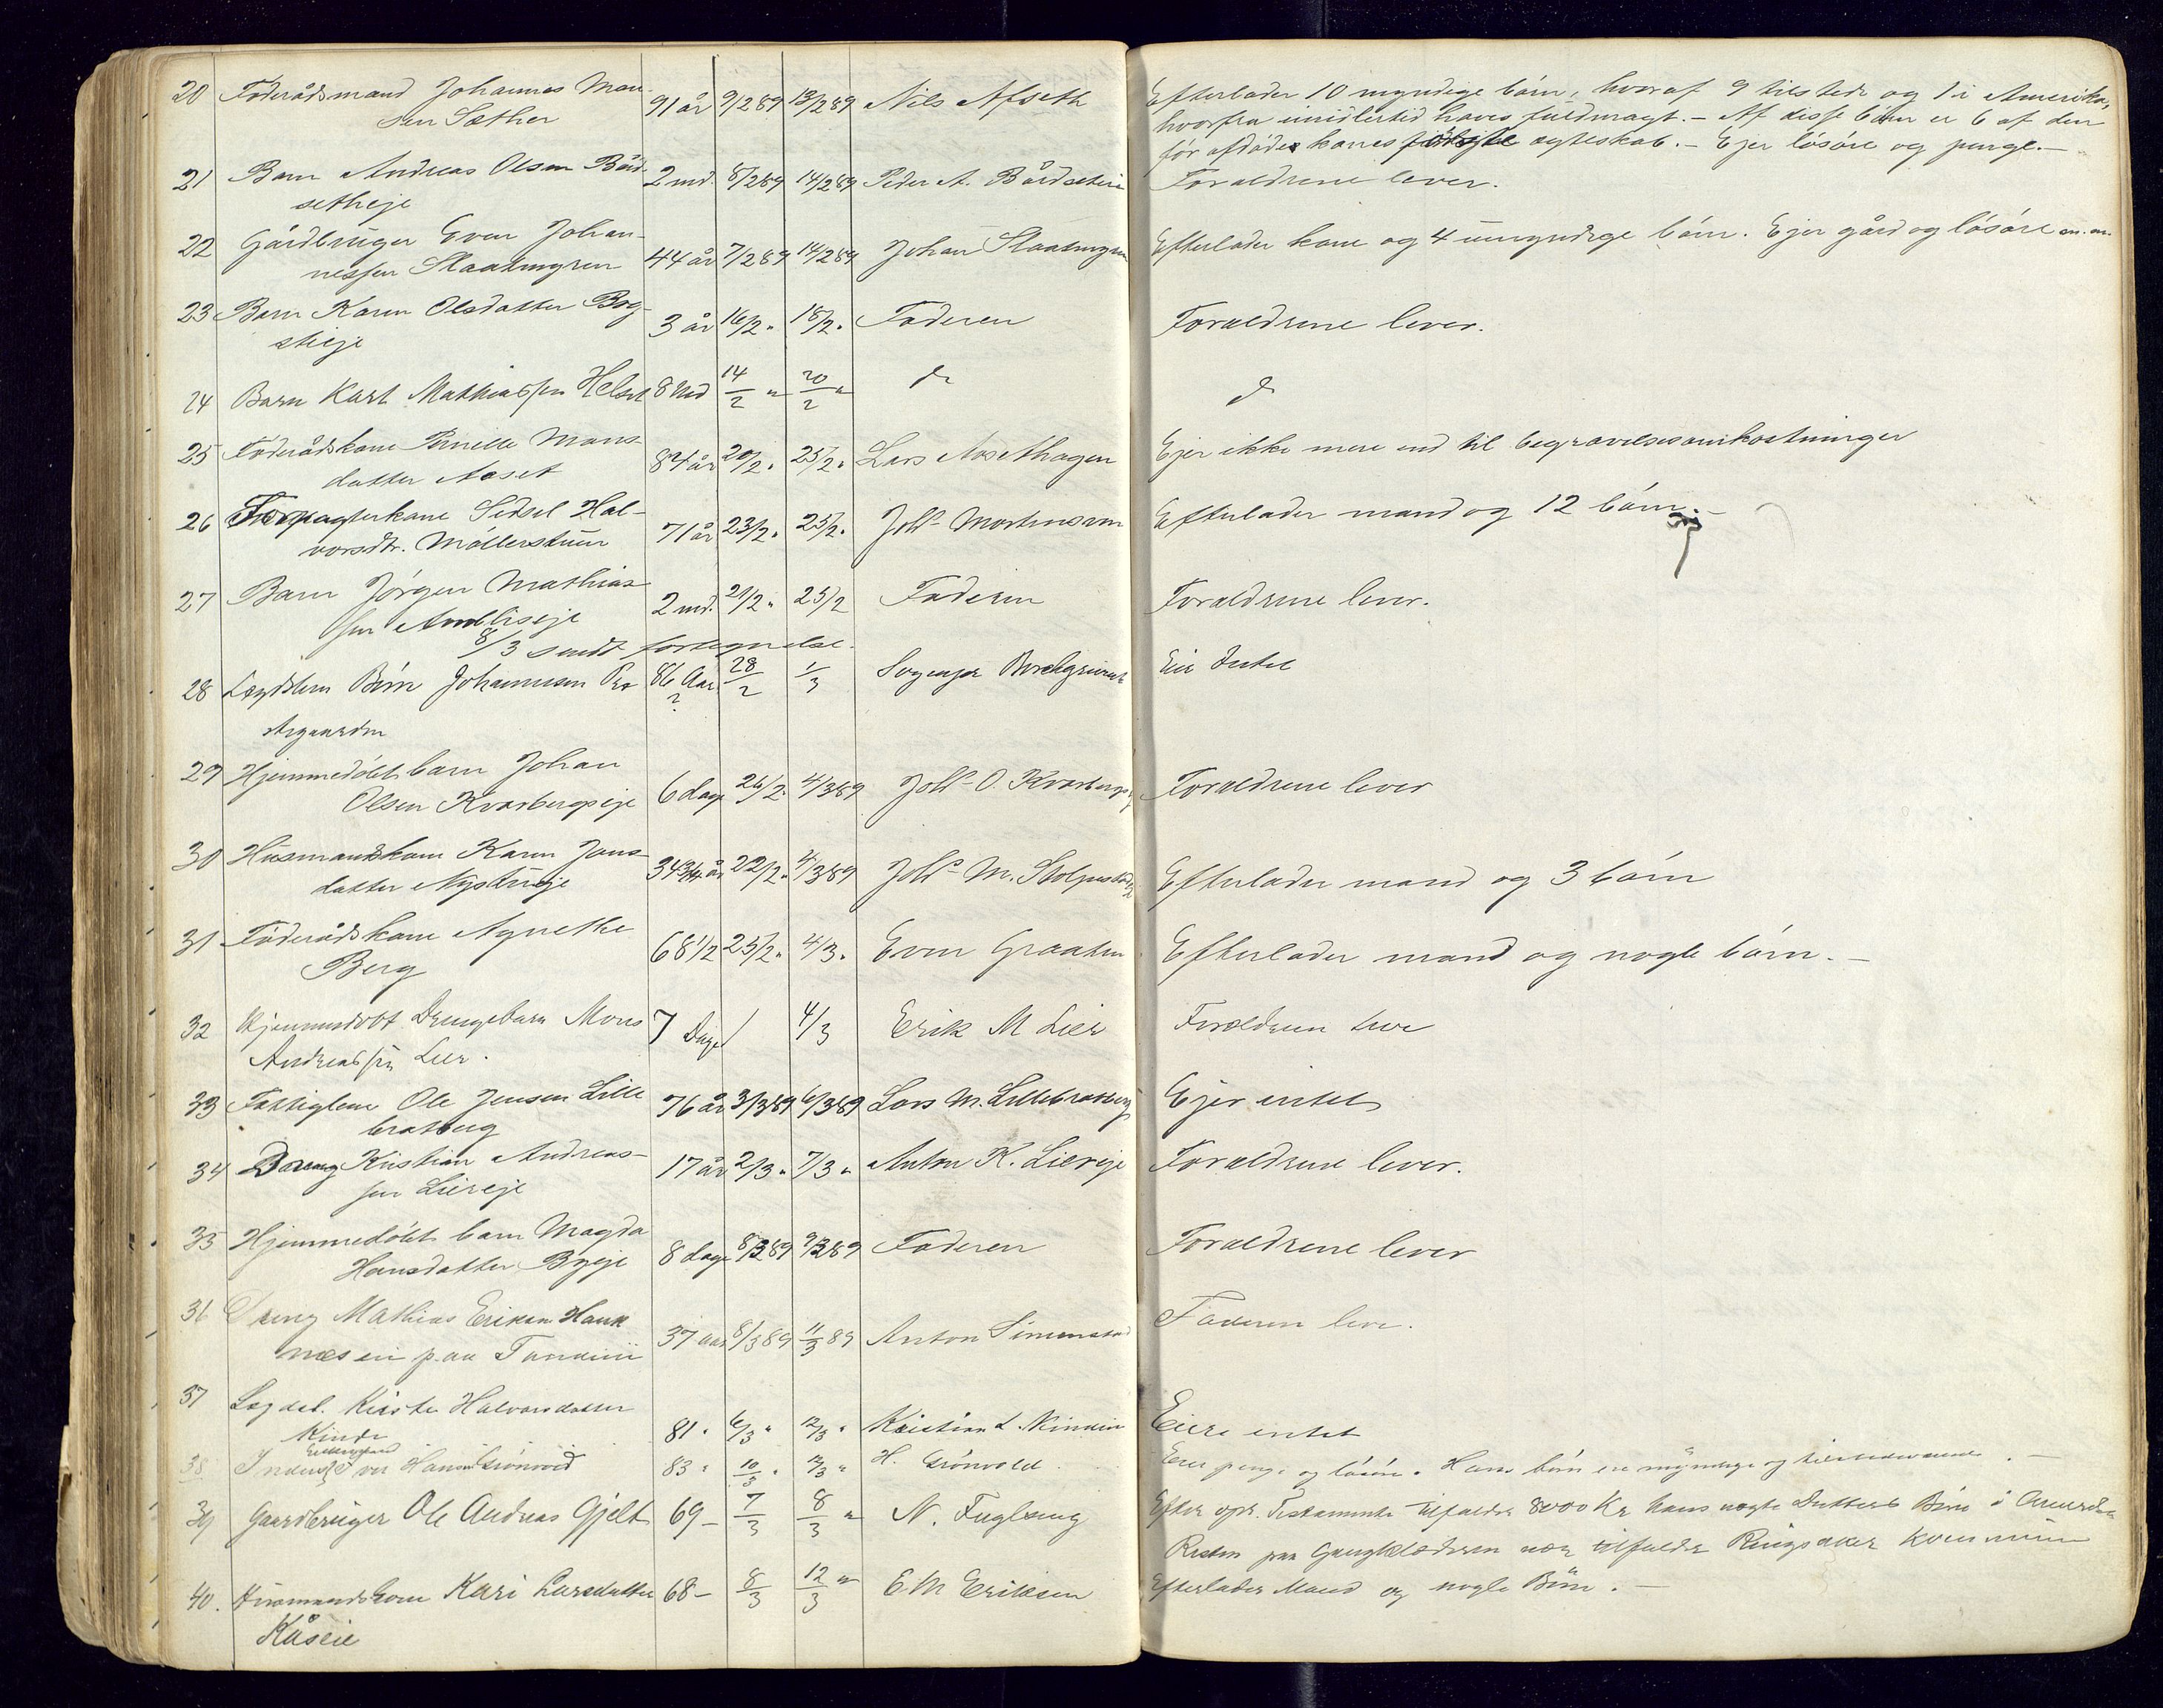 20 Föderådsmand Johannes Mon- 91 år 9/2 89 13/2 89 Nils Afseth Efterlader 10 myndige børn, hvoraf 9 tilstede og 1 i Amerika,
sen Sæther hvorfra imidlertid haves fuldmagt. – Af disse børn er 6 af den
før afdøde kones ægteskab. – Ejer løsøre og penge. –
21 Barn Andreas Olsen Bård- 2 md. 8/2 89 14/2 89 Peder A. Bårdseteie Forældrene lever.
setheje
22 Gårdbruger Even Johan- 44 år 7/2 89 14/2 89 Johan Slaatmyren Efterlader kone og 4 umyndige børn. Ejer gård og løsøre m.m.
nessen Slaatmyren
23 Barn Karen Olsdatter 3 år 16/2 " 18/2 " Faderen Forældrene lever.
24 Barn Karl Mathiassen 8 Md 14/2 " 20/2 " do do
25 Föderådskone Pernille Mons- 84 år 20/2 " 25/2 " Lars Aasethagen Ejer ikke mere end til begravelsesomkostninger
datter Aaset
26 Forpagterkone Sidsel Hal- 71 år 23/2 " 25/2 " Johs Martinsen Efterlader mand og 12 børn. –
vorsdtr. Möllerstuen
27 Barn Jörgen Mathias- 2 md. 21/2 " 25/2 Faderen Forældrene lever.
sen
8/3 sendt fortegnelse.
28 Lægdslem Börn Johannesen Præ 86 Aar 28/2 1/3 Sogneprs Borchgrevink Eier Intet
stegaarden ?
29 Hjemmedöbt barn Johan 6 dage 26/2 " 4/3 89 Johs O. Kvarbergs Forældrene lever
Olsen Kvarbergseje
30 Husmandskone Karen Jons- 34 3/4 år 22/2 " 4/3 89 Johs M. Stolpestad Efterlader mand og 3 børn
datter
31 Föderådskone Agnethe 68 1/2 25/2 " 4/3 " Even Graaten Efterlader mand og nogle børn. –
Berg
32 Hjemmedöbt Drengebarn Mons 7 Dage / 4/3 Erik M Lier Forældrene leve
Andreassen Lier.
33 Fattiglem Ole Jensen Lille 76 år 3/3 89 6/3 89 Lars M. Lillebratberg Ejer intet
bratberg
34 Dreng Kristian Andreas- 17 år 2/3 " 7/3 " Anton K. Liereje Forældrene lever.
sen Liereje
35 Hjemmedöbt barn Magda 8 dage 8/3 89 9/3 89 Faderen Forældrene lever
Hansdatter Byeje
36 Mathias Eriksen 37 aar 8/3 89 11/3 89 Anton Simenstad Faderen leve.
37 Lægdsl. Kirsti Halvorsdatter 81 " 6/3 " 12/3 " Kristian L. Eiere intet
38 83 " 10/3 " 12/3 " H. Grönvold Eier penge og løsøre. Hans børn ere myndige og tilstedeværende. –
39 Gaardbruger Ole Andreas Gjelt 69 – 7/3 8/3 " N. Fuglseng Efter opr. Testamente tilfalder 8000 Kr hans Datters Børn i Amerika
Resten paa Gangklæderne nær tilfalder Ringsaker Kommune
40. Husmandskone Kari Larsdatter 68 – 8/3 12/3 " E. M. Eriksen Efterlader Mand og nogle Börn. –
Kåseie